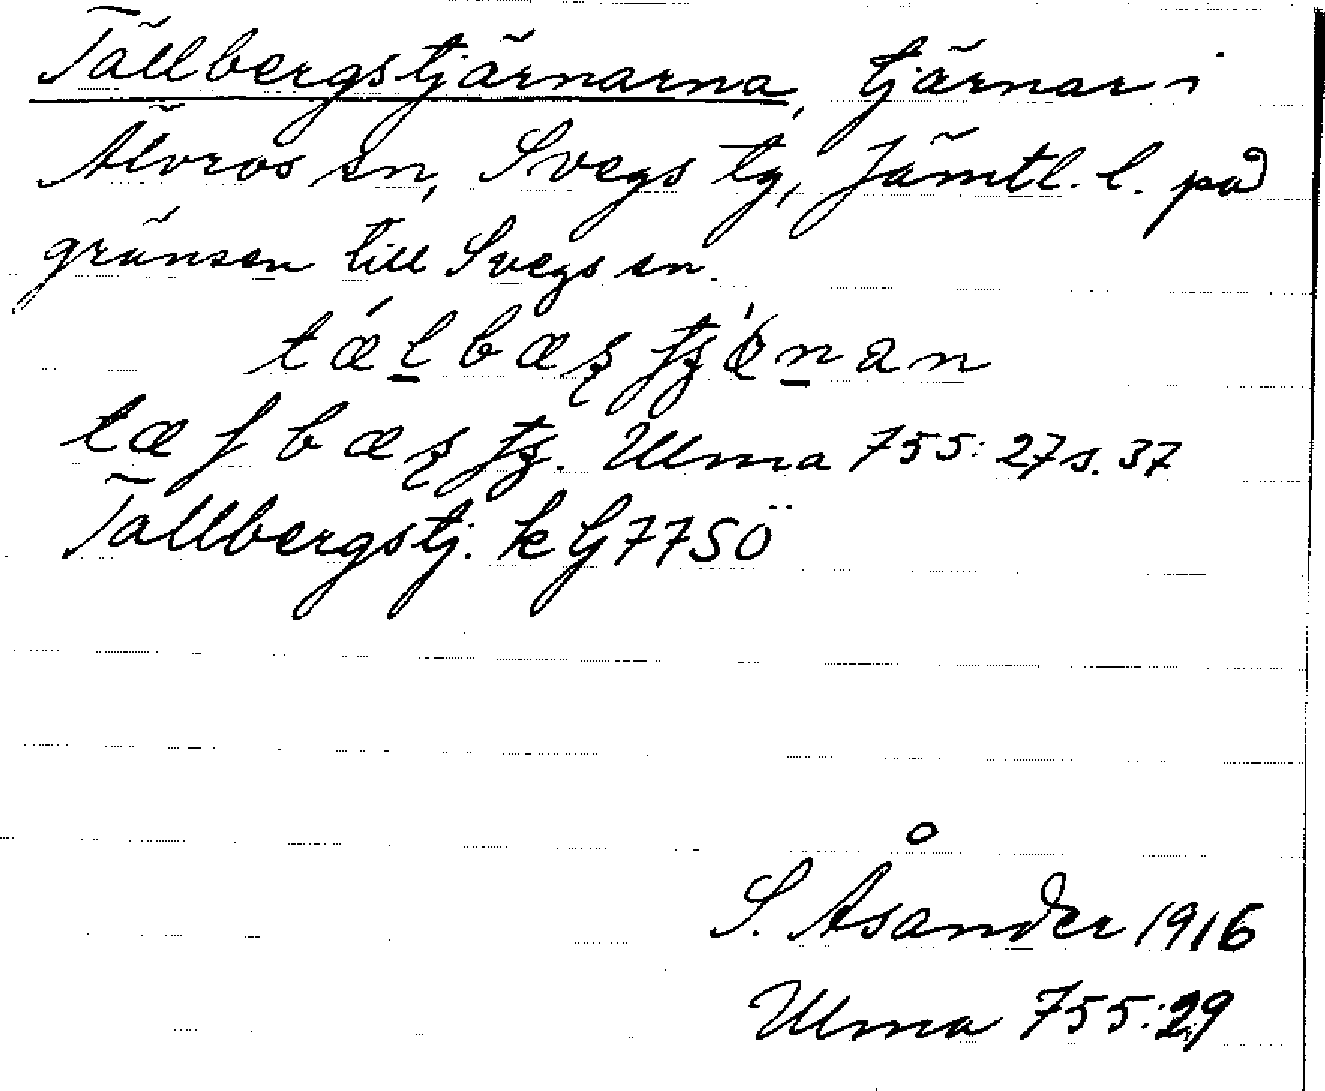 Tällbergstjärnarna, tjärnar i
Älvros sn, Svegs tg, Jämtl. l. på
gränsen till Svegs sn.
Ulma 755:27 s. 37
Tällbergstj. k Gj 77 SÖ
S. Åsander 1916
Ulma 755:29